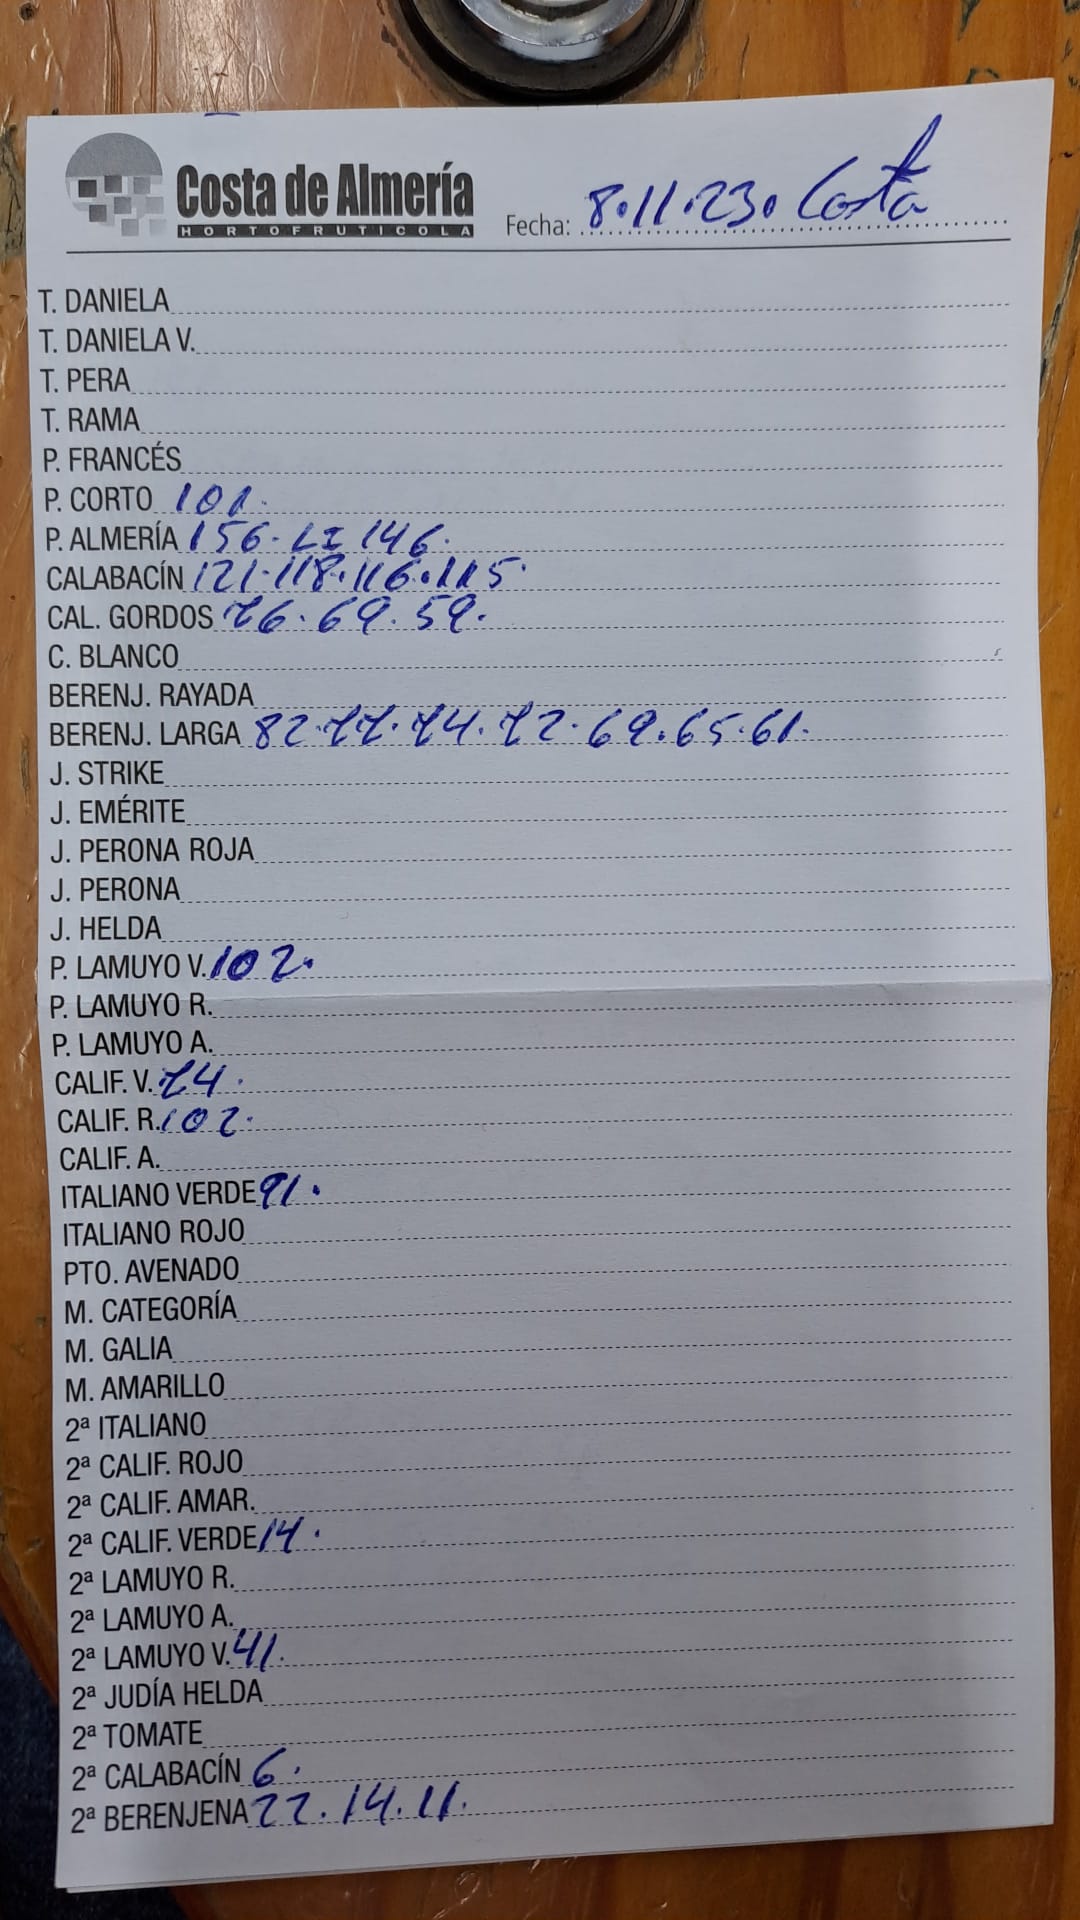 Costa de Almería
HORTOFRUTICOLA
Fecha: 8.11.23. Costa
T. DANIELA
T. DANIELA V.
T. PERA
T. RAMA
P. FRANCÉS
P. CORTO 101.
P. ALMERÍA 156. LI 146.
CALABACÍN 121.118.116.115.
CAL. GORDOS 76.69.59.
C. BLANCO
BERENJ. RAYADA
BERENJ. LARGA 82.77.74.72.69.65.61.
J. STRIKE
J. EMÉRITE
J. PERONA ROJA
J. PERONA
J. HELDA
P. LAMUYO V. 102.
P. LAMUYO R.
P. LAMUYO A.
CALIF. V. 74.
CALIF. R. 102.
CALIF. A.
ITALIANO VERDE 91.
ITALIANO ROJO
PTO. AVENADO
M. CATEGORÍA
M. GALIA
M. AMARILLO
2ª ITALIANO
2ª CALIF. ROJO
2ª CALIF. AMAR.
2ª CALIF. VERDE 14.
2ª LAMUYO R.
2ª LAMUYO A.
2ª LAMUYO V. 41.
2ª JUDÍA HELDA
2ª TOMATE
2ª CALABACÍN 6.
2ª BERENJENA 22.14.11.